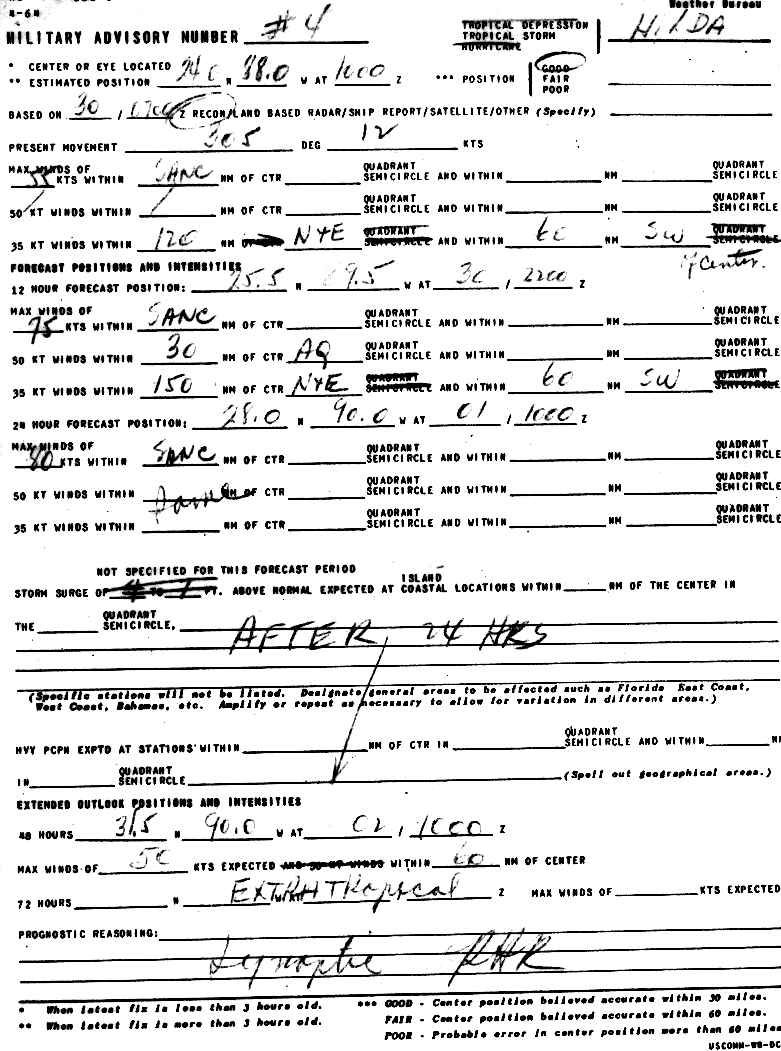 4-64 Weather Bureau
MILITARY ADVISORY NUMBER #4 TROPICAL DEPRESSION HILDA
TROPICAL STORM
HURRICANE
* CENTER OR EYE LOCATED
** ESTIMATED POSITION 24.0 N 88.0 W AT 1000 Z *** POSITION GOOD
FAIR
POOR
BASED ON 30 / 0700 Z RECON/LAND BASED RADAR/SHIP REPORT/SATELLITE/OTHER (Specify)
PRESENT MOVEMENT 305 DEG 12 KTS
MAX WINDS OF QUADRANT QUADRANT
55 KTS WITHIN SANC NM OF CTR SEMICIRCLE AND WITHIN NM SEMICIRCLE
50 KT WINDS WITHIN
35 KT WINDS WITHIN 120 NM OF CTR N+E QUADRANT SEMICIRCLE AND WITHIN 60 NM SW QUADRANT SEMICIRCLE
of center.
FORECAST POSITIONS AND INTENSITIES
12 HOUR FORECAST POSITION: 25.5 N 89.5 W AT 30 / 2200 Z
MAX WINDS OF QUADRANT QUADRANT
75 KTS WITHIN SANC NM OF CTR SEMICIRCLE AND WITHIN NM SEMICIRCLE
QUADRANT QUADRANT
50 KT WINDS WITHIN 30 NM OF CTR AQ SEMICIRCLE AND WITHIN NM SEMICIRCLE
QUADRANT QUADRANT
35 KT WINDS WITHIN 150 NM OF CTR N+E SEMICIRCLE AND WITHIN 60 NM SW SEMICIRCLE
24 HOUR FORECAST POSITION: 28.0 N 90.0 W AT 01 / 1000 Z
MAX WINDS OF QUADRANT QUADRANT
80 KTS WITHIN SANC NM OF CTR SEMICIRCLE AND WITHIN NM SEMICIRCLE
QUADRANT QUADRANT
50 KT WINDS WITHIN Same NM OF CTR SEMICIRCLE AND WITHIN NM SEMICIRCLE
QUADRANT QUADRANT
35 KT WINDS WITHIN NM OF CTR SEMICIRCLE AND WITHIN NM SEMICIRCLE
NOT SPECIFIED FOR THIS FORECAST PERIOD
ISLAND
STORM SURGE OF TO FT. ABOVE NORMAL EXPECTED AT COASTAL LOCATIONS WITHIN NM OF THE CENTER IN
QUADRANT
THE SEMICIRCLE, AFTER 24 HRS
(Specific stations will not be listed. Designate general areas to be affected such as Florida East Coast,
West Coast, Bahamas, etc. Amplify or repeat as necessary to allow for variation in different areas.)
QUADRANT
HVY PCPN EXPTD AT STATIONS WITHIN NM OF CTR IN SEMICIRCLE AND WITHIN
QUADRANT
IN SEMICIRCLE (Spell out geographical areas.)
EXTENDED OUTLOOK POSITIONS AND INTENSITIES
48 HOURS 31.5 N 90.0 W AT 02 / 1000 Z
MAX WINDS OF 50 KTS EXPECTED AND 50 KT WINDS WITHIN 60 NM OF CENTER
72 HOURS N EXTRATropical Z MAX WINDS OF KTS EXPECTED
PROGNOSTIC REASONING:
Synoptic RHR
* When latest fix is less than 3 hours old. *** GOOD - Center position believed accurate within 30 miles.
** When latest fix is more than 3 hours old. FAIR - Center position believed accurate within 60 miles.
POOR - Probable error in center position more than 60 miles
USCOMM-WB-DC